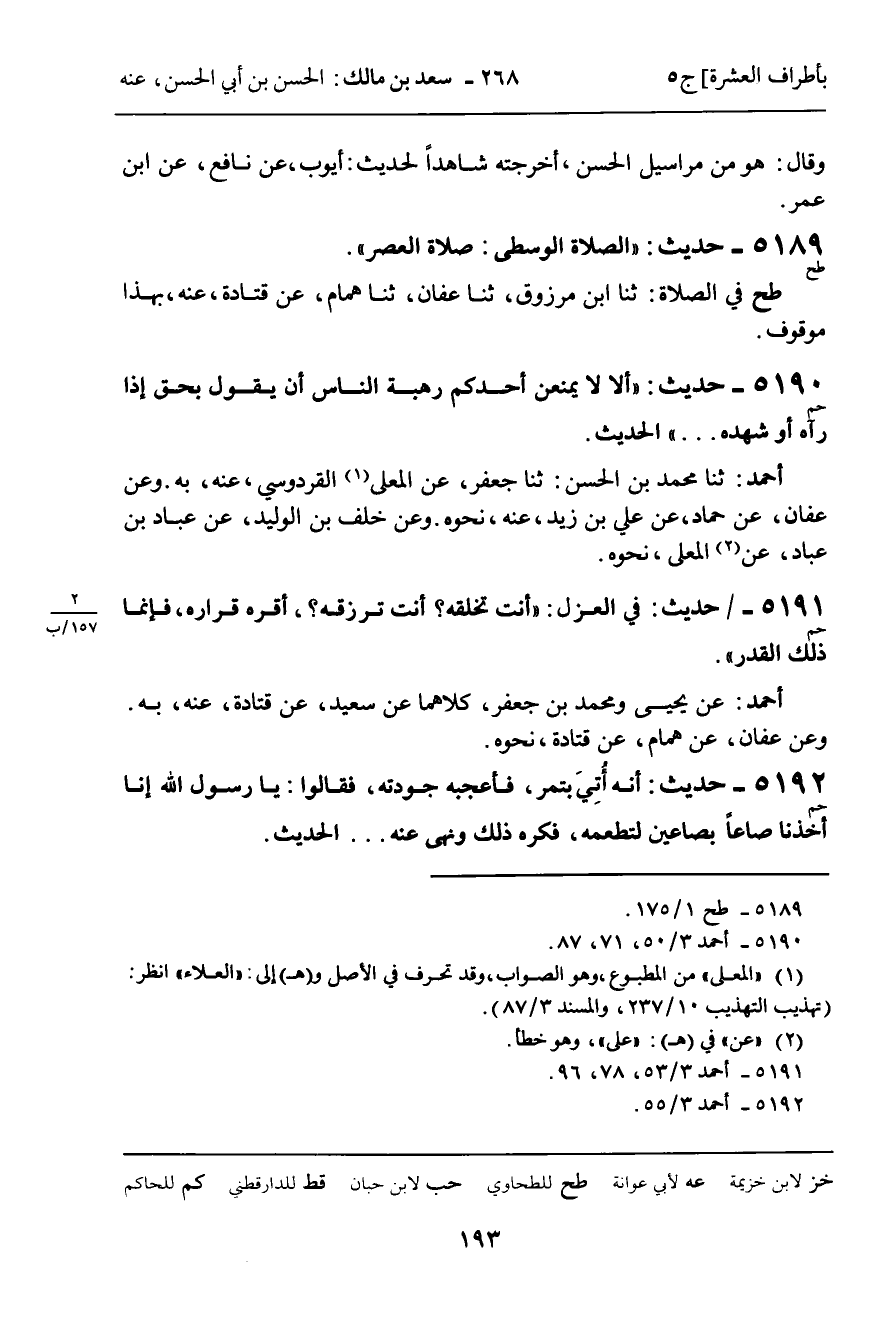 بأطراف العشرة] ج٥ ٢٦٨ ـ سعد بن مالك: الحسن بن أبي الحسن، عنه
وقال: هو من مراسيل الحسن، أخرجته شاهداً لحديث: أيوب، عن نافع، عن ابن
عمر.
٥١٨٩ ـ حديث: «الصلاة الوسطى: صلاة العصر».
طح
طح في الصلاة: ثنا ابن مرزوق، ثنا عفان، ثنا همام، عن قتادة، عنه، بهذا
موقوف.
٥١٩٠ ـ حديث: «ألا لا يمنعن أحدكم رهبة الناس أن يقول بحق إذا
حم
رآه أو شهده...» الحديث.
أحمد: ثنا محمد بن الحسن: ثنا جعفر، عن المعلى(١) القردوسي، عنه، به. وعن
عفان، عن حماد، عن علي بن زيد، عنه، نحوه. وعن خلف بن الوليد، عن عباد بن
عباد، عن(٢) المعلى، نحوه.
٥١٩١ ـ / حديث: في العزل: «أنت تخلقه؟ أنت ترزقه؟، أقره قراره، فإنما
٢
١٥٧/ب
حم
ذلك القدر».
أحمد: عن يحيى ومحمد بن جعفر، كلاهما عن سعيد، عن قتادة، عنه، به.
وعن عفان، عن همام، عن قتادة، نحوه.
٥١٩٢ ـ حديث: أنه أُتِيَ بتمر، فأعجبه جودته، فقالوا: يا رسول الله إنا
حم
أخذنا صاعاً بصاعين لتطعمه، فكره ذلك ونهى عنه... الحديث.
٥١٨٩ ـ طح ١/١٧٥.
٥١٩٠ ـ أحمد ٣/٥٠، ٧١، ٨٧.
(١) «المعلى» من المطبوع، وهو الصواب، وقد تحرف في الأصل و(هـ) إلى: «العلاء» انظر:
(تهذيب التهذيب ١٠/٢٣٧، والمسند ٣/٨٧).
(٢) «عن» في (هـ): «على»، وهو خطأ.
٥١٩١ ـ أحمد ٣/٥٣، ٧٨، ٩٦.
٥١٩٢ ـ أحمد ٣/٥٥.
خز لابن خزيمة عه لأبي عوانة طح للطحاوي حب لابن حبان قط للدارقطني كم للحاكم
١٩٣